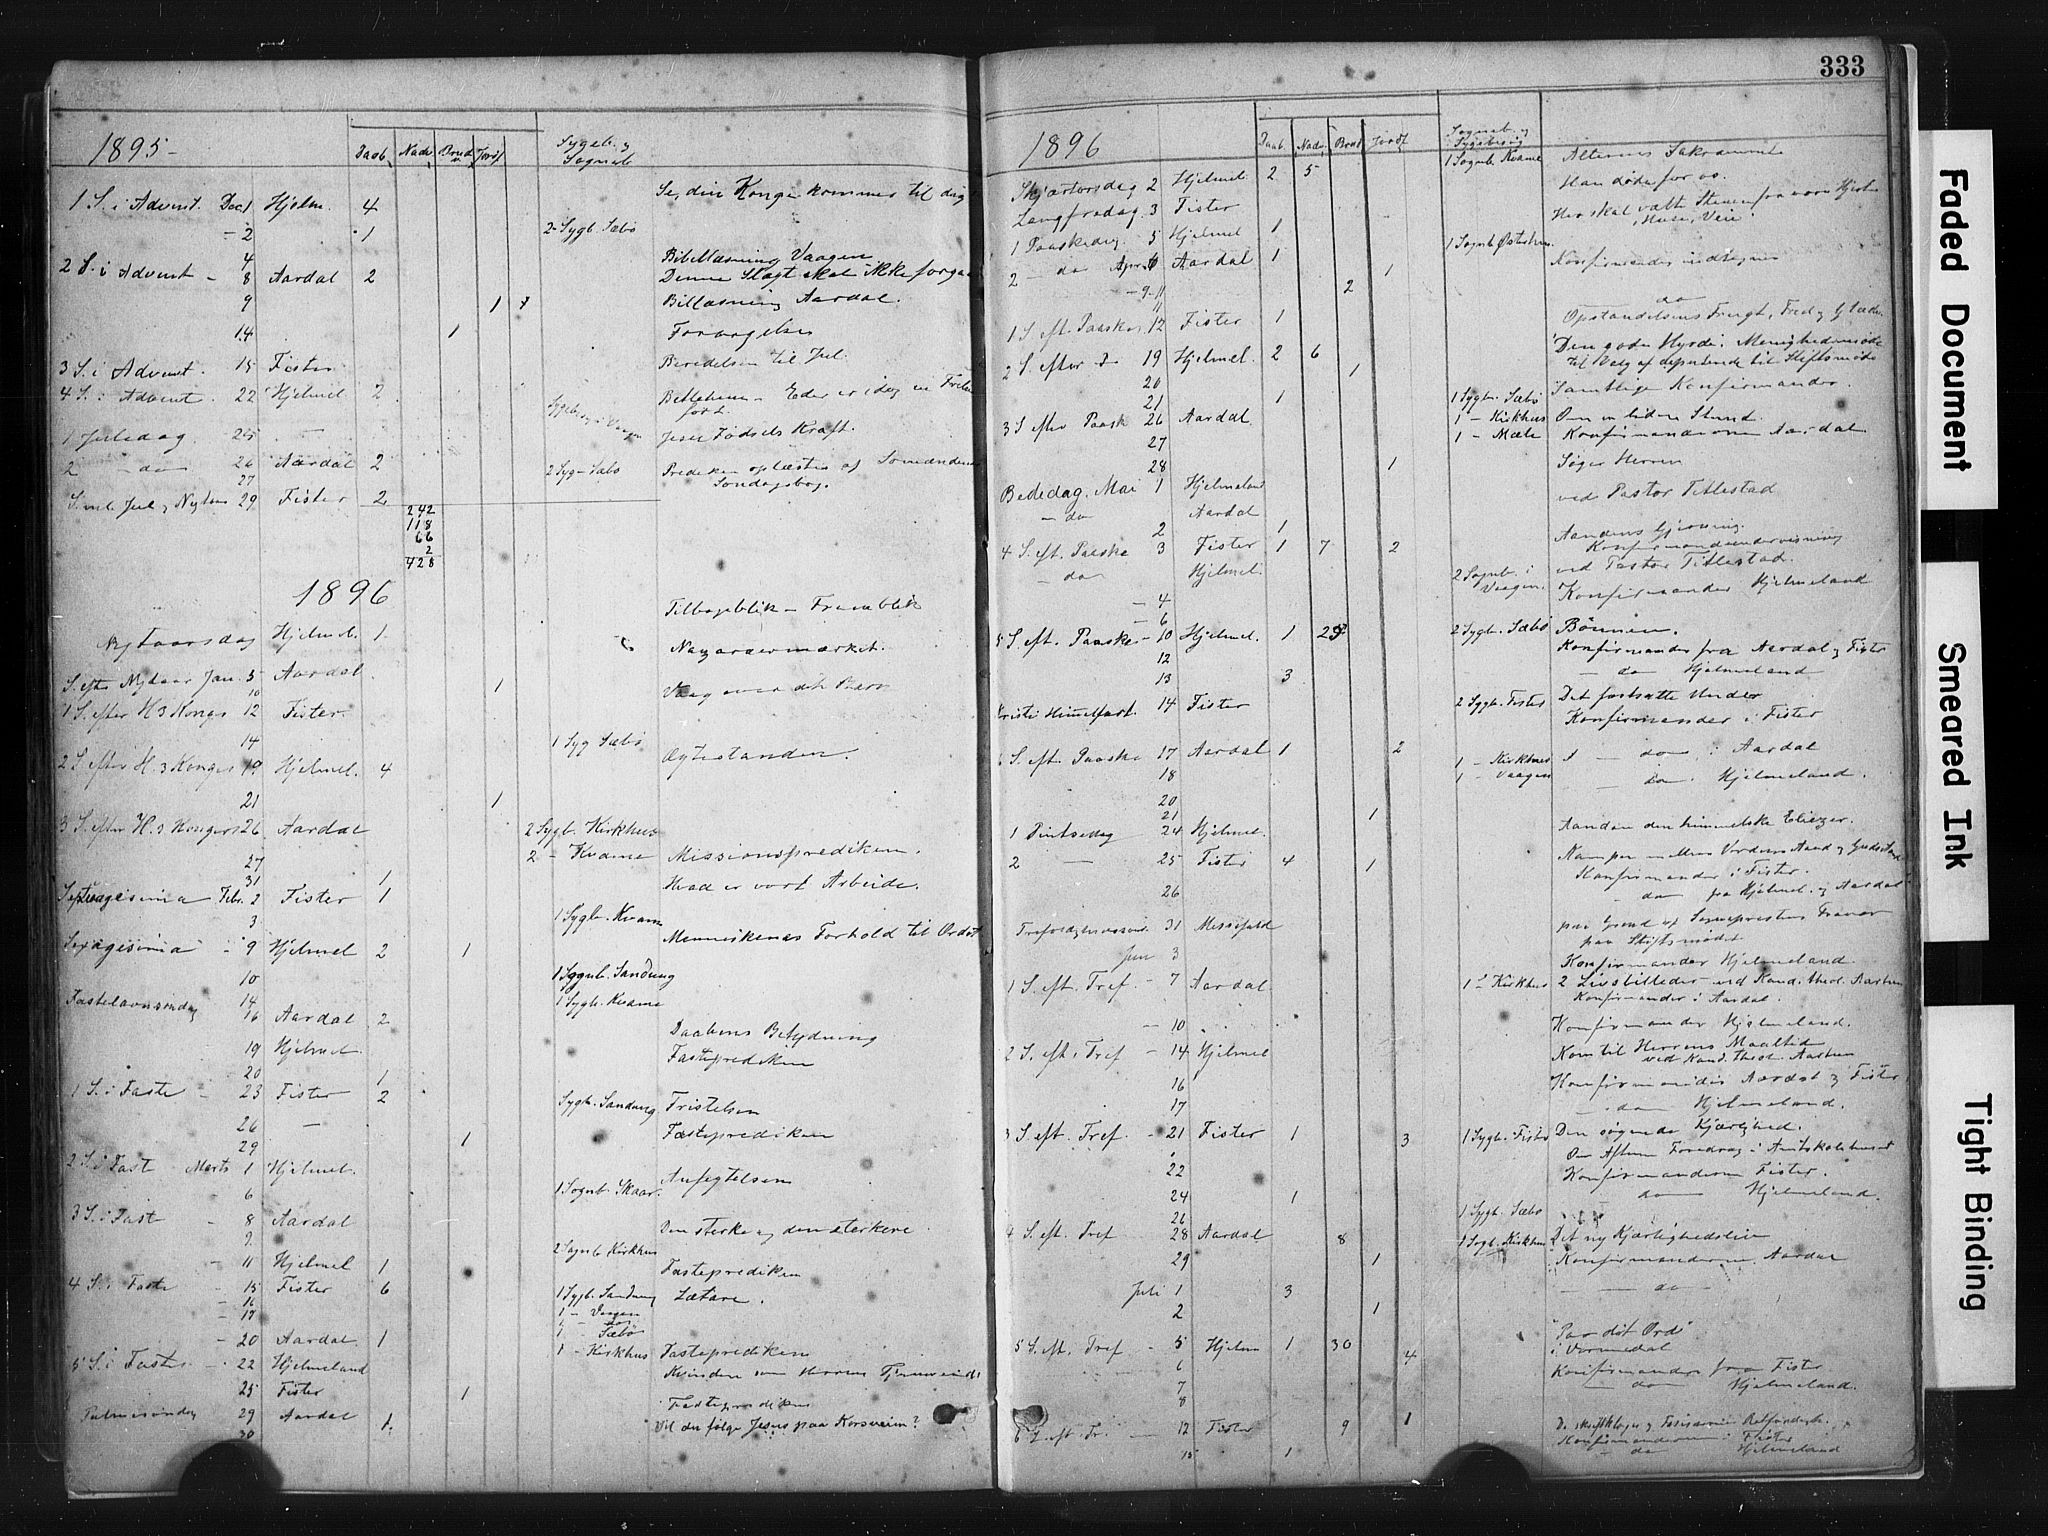 333
1895
Daab. Nadv. Brud v. Jordf Sygeb. og Sogneb
1 S. i Advent. Dec 1 Hjelm. 4 Se, din Konge kommer til dig
- 2 1 2 Sygb. Sæbö
4 Bibellæsning Vaagen
2 S. i Advent - 8 Aardal 2 Denne Slægt skal ikke forgaa
9 1 Bibllæsning Aardal.
14 1 Forargelse
3 S. i Advent. 15 Fister Beredelsen til Jul.
4 S. i Advent. 22 Hjelmel 2 Betlehem - Eder er idag en Frelser født.
Sygebesøg i Vaagen
1 Juledag 25 - Jesu Fødsels Kraft.
2 - do 26 Aardal 2 2 Syg - Sæbö Prediken oplæstes af
27 Søndagsbog.
S. ml. Jul og Nytaar 29 Fister 2
242
118
66
2
428
1896
Nytaarsdag Hjelmel. 1 Tilbageblik - Fremblik
S. efter Nytaar Jan. 5 Aardal. Nazaræermærket.
10 1
1 S. efter H 3 Konger 12 Fister. Vaag over dit Barn
14 1 Syg Sæbö
2 S. efter H. 3 Konger 19 Hjelmel. 4 Ægtestanden.
21 1
3 S. efter H. 3 Konger 26 Aardal 2 Sygb. Kirkhus
27 2 - Kvame Missionsprediken.
31 1
Septuagesima Febr. 2 Fister 1 Hvad er vort Arbeide.
3 1 Sygb. Kvame
Sexagesima - 9 Hjelmel 2 1 Menneskenes Forhold til Ordet
10 1 Sognb. Sandung
14 1 Sygb. Kvame
Fastelavnsøndag 16 Aardal 2 Daabens Betydning
19 Hjelmel. Fasteprediken
20 1
1 S. i Faste - 23 Fister 2 Sygb. Sandung Fristelsen
26 - Fasteprediken
29 1
2 S. i Fast Marts 1 Hjelmel. Anfegtelsen
6 1 Sognb. Skaar.
3 S. i Fast - 8 Aardal Den sterke og den sterkere.
9. 2 Sognb Kirkhus
- 11 Hjelmel 1 Fasteprediken
4 S. i Faste - 15 Fister 6 1 Sygb. Sandung Lætare.
- 16 1 - Vaagen
- 17 1 - do
1 - Sæbö
- 20 Aardal 1 1 - Kirkhus Fasteprediken
5 S. i Faste - 22 Hjelmeland Kvinden som Herrens Tjenerinde
25 Fister 1 Fasteprediken
Palmesöndag 29 Aardal 1. Vil du følge Jesus paa Korsveien?
30
1896
Daab. Nadv. Brud Jordf Sogneb. og Sygebesög
Skjærtorsdag 2 Hjelmel 2 5 1 Sognb. Kvame Alterets Sakramente
Langfredag 3 Fister Han døde for os.
1 Paaskedag 5 Hjelmel 1 Hvo skal vælte Stenen fra vore Hjerter, Huse, Veie
2 - do April 6 Aardal 1 1 1 Sognb
- 9-11 2 Konfirmander indtegnes
11 - do
1 S. eft. Paaske 12 Fister 1 Opstandelsens Frugt, Fred og Glæde.
2 S. efter P. 19 Hjelmel. 2 6 "Den gode Hyrde". Menighedsmøde til Valg af deputerede til Stiftsmøde
20 1
21 1 1 Sygb. Sæbö Samtlige Konfirmander.
3 S. efter Paask 26 Aardal. 1 - Kirkhus Om en liden Stund.
27 1 - Mæle Konfirmanderne Aardal
28 1
Bededag. Mai 1 Hjelmeland Søger Herren
- do Aardal ved Pastor Titlestad
2 1
4 S. eft. Paaske 3 Fister 1 7 2 Aandens Gjerning.
Konfirmandundervisning
- do Hjelmel. ved Pastor Titlestad.
- 4 2 Sognb. i Vaagen. Konfirmander Hjelmeland
- 6
5 S. eft. Paaske - 10 Hjelmel. 1 29 2 Sygb. Sæbö Bønnen.
12 Konfirmander fra Aardal og Fister
13 3 - do Hjelmeland
Kristi Himmelfart. 14 Fister 2 Sygb. Fister Det fortsatte Under
Konfirmander i Fister
6 S. eft. Paaske 17 Aardal 1 2 - do i Aardal
18 1 - Kirkhus
1 - Vaagen - do. Hjelmeland.
20
21 1
1 Pintsedag 24 Hjelmel. Aanden den himmelske Eliezer.
2 - 25 Fister 4 1 Kamp mellem Verdens Aand og Guds Aand
26 Konfirmander i Fister.
- do fra Hjelmel. og Aardal
Trefoldighedssønd. 31 Messefald paa Grund af Sognepræstens Fravær paa Stiftsmødet
Juni 3 Konfirmander Hjelmeland.
1 S. eft. Tref. - 7 Aardal 1 - Kirkhus 2 Livsbilleder ved Kand. theol. Aarhun
Konfirmander i Aardal.
- 10 Konfirmander Hjelmeland.
2 S. eft. Tref - 14 Hjelmel Kom til Herrens Maaltid ved Kand. theol. Aarhun
16 Konfirmander Aardal og Fister
17 - do Hjelmeland.
3 S. eft. Tref. - 21 Fister 1 3 1 Sygb. Fister Den søgende Kjærlighed.
Om Aftenen Foredrag i Amtskolehuset
22 Konfirmanderne Fister.
24 1 - do Hjelmeland.
26 1 Sygb. Sæbö
4 S. eft. Tref 28 Aardal 8 1 Sogb. Kirkhus Det ny Kjærlighedsliv
29 1 Konfirmanderne Aardal
Juli 1 3 - do
2 1
5 S. eft. Tref - 5 Hjelm 1 30 4 "Paa dit Ord"
6 i Vormedal
7 Konfirmander fra Fister
8 - do Hjelmeland.
6 S. eft. Tr. - 12 Fister 9 1
Konfirmanderne i Fister
15 1 - do Hjelmeland
Faded Document
Smeared Ink
Tight Binding